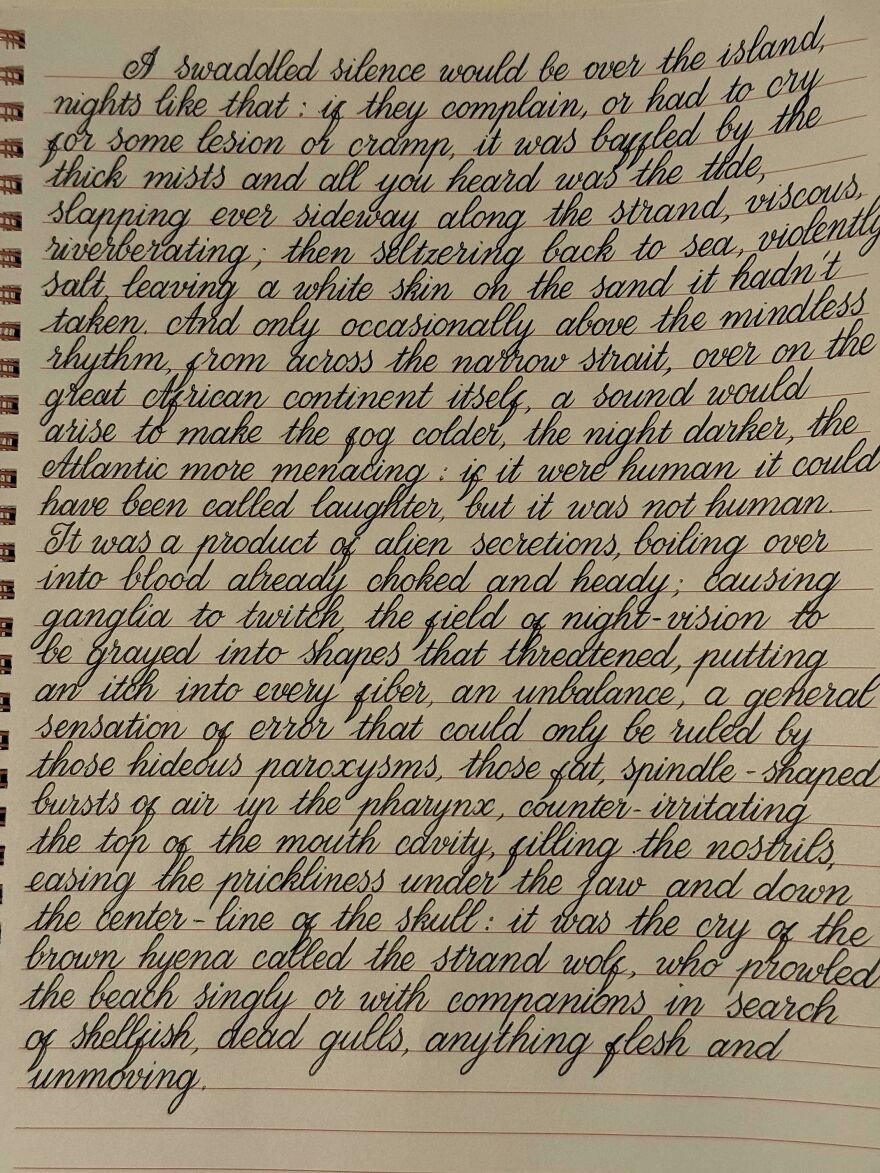 A swaddled silence would be over the island,
nights like that : if they complain, or had to cry
for some lesion or cramp, it was baffled by the
thick mists and all you heard was the tide,
slapping ever sideway along the strand, viscous,
riverberating; then seltzering back to sea, violently
salt, leaving a white skin on the sand it hadn't
taken. And only occasionally above the mindless
rhythm, from across the narrow strait, over on the
great African continent itself, a sound would
arise to make the fog colder, the night darker, the
Atlantic more menacing : if it were human it could
have been called laughter, but it was not human.
It was a product of alien secretions, boiling over
into blood already choked and heady; causing
ganglia to twitch, the field of night-vision to
be grayed into shapes that threatened, putting
an itch into every fiber, an unbalance, a general
sensation of error that could only be ruled by
those hideous paroxysms, those fat, spindle-shaped
bursts of air up the pharynx, counter-irritating
the top of the mouth cavity, filling the nostrils,
easing the prickliness under the jaw and down
the center-line of the skull : it was the cry of the
brown hyena called the strand wolf, who prowled
the beach singly or with companions in search
of shellfish, dead gulls, anything flesh and
unmoving.